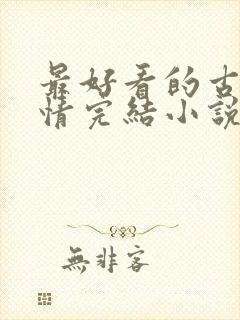 最好看的古
情完結小說
無非客